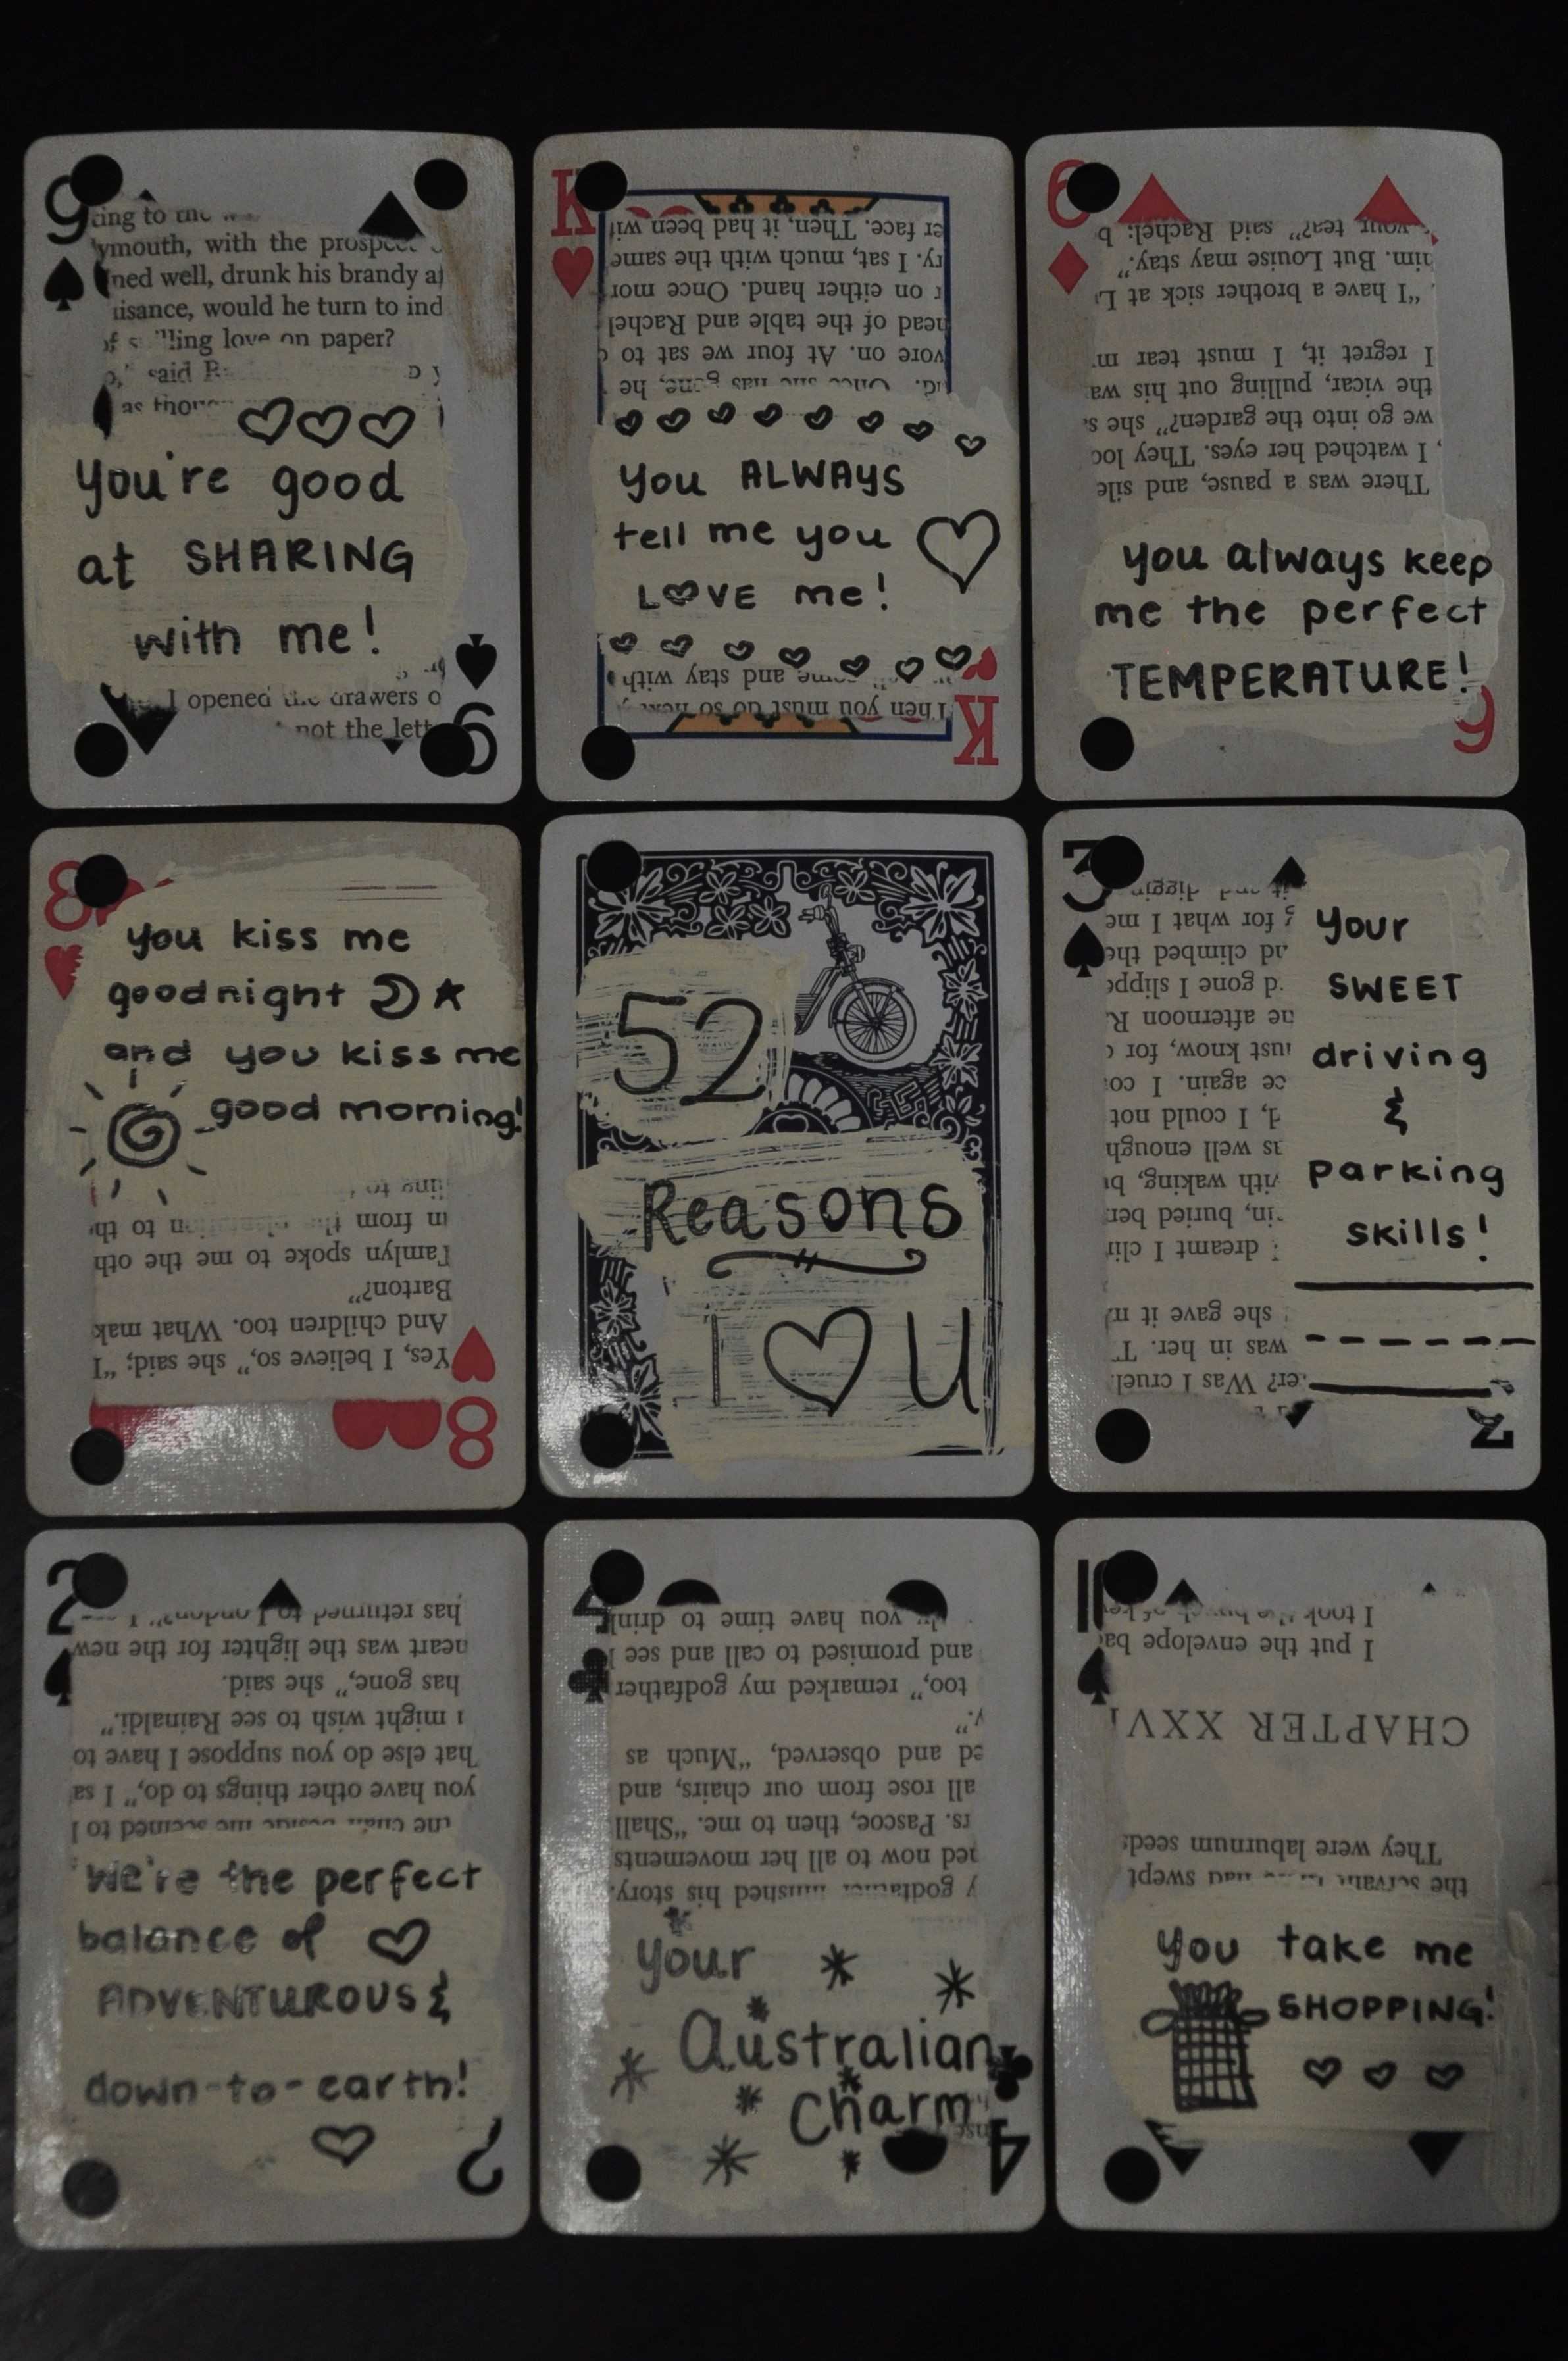 9
ymouth, with the
ned well, drunk his brandy
isance, would he turn to ind
love on paper?
said
You're good
at SHARING
with me!
I opened the drawers o
not the lett
9
K
er face. Then, it had been
ry. I sat, much with the same
r on either hand. Once mor
head of the table and Rachel
vore on. At four we sat to
he
You ALWAYS
tell me you
LOVE me!
and stay with
Then you must do so
K
6
your tea?" said Rachel:
him. But Louise may stay."
"I have a brother sick at
I regret it, I must tear m
the vicar, pulling out his
we go into the garden?" she
I watched her eyes. They loo
There was a pause, and sile
you always keep
me the perfect
TEMPERATURE!
6
8
you kiss me
goodnight
and you kiss me
good morning!
in from the to th
Tamlyn spoke to me the oth
Barton?"
And children too. What mak
Yes, I believe so," she said; "I
8
52
Reasons
I ♡ U
3
g for what I me
nd climbed the
d gone I slippe
ne afternoon R
ust know, for
ce again. I co
d, I could not
as well enough
vith waking, b
in, buried ber
dreamt I cli
she gave it
was in her. T
er? Was I cruel
your
SWEET
driving
&
parking
skills!
3
2
has returned to London?"
heart was the lighter for the new
has gone," she said.
might wish to see Rainaldi."
hat else do you suppose I have to
you have other things to do," I sa
seemed to
We're the perfect
balance of ♡
ADVENTUROUS &
down-to-earth!
2
4
you have time to drink
and promised to call and see
too," remarked my godfather
ed and observed, "Much as
all rose from our chairs, and
rs. Pascoe, then to me. "Shall
ned now to all her movements
y godfather finished his story.
your
Australian
Charm
4
I took the
I put the envelope ba
CHAPTER XXV
They were laburnum seeds
the had swept
You take me
SHOPPING!